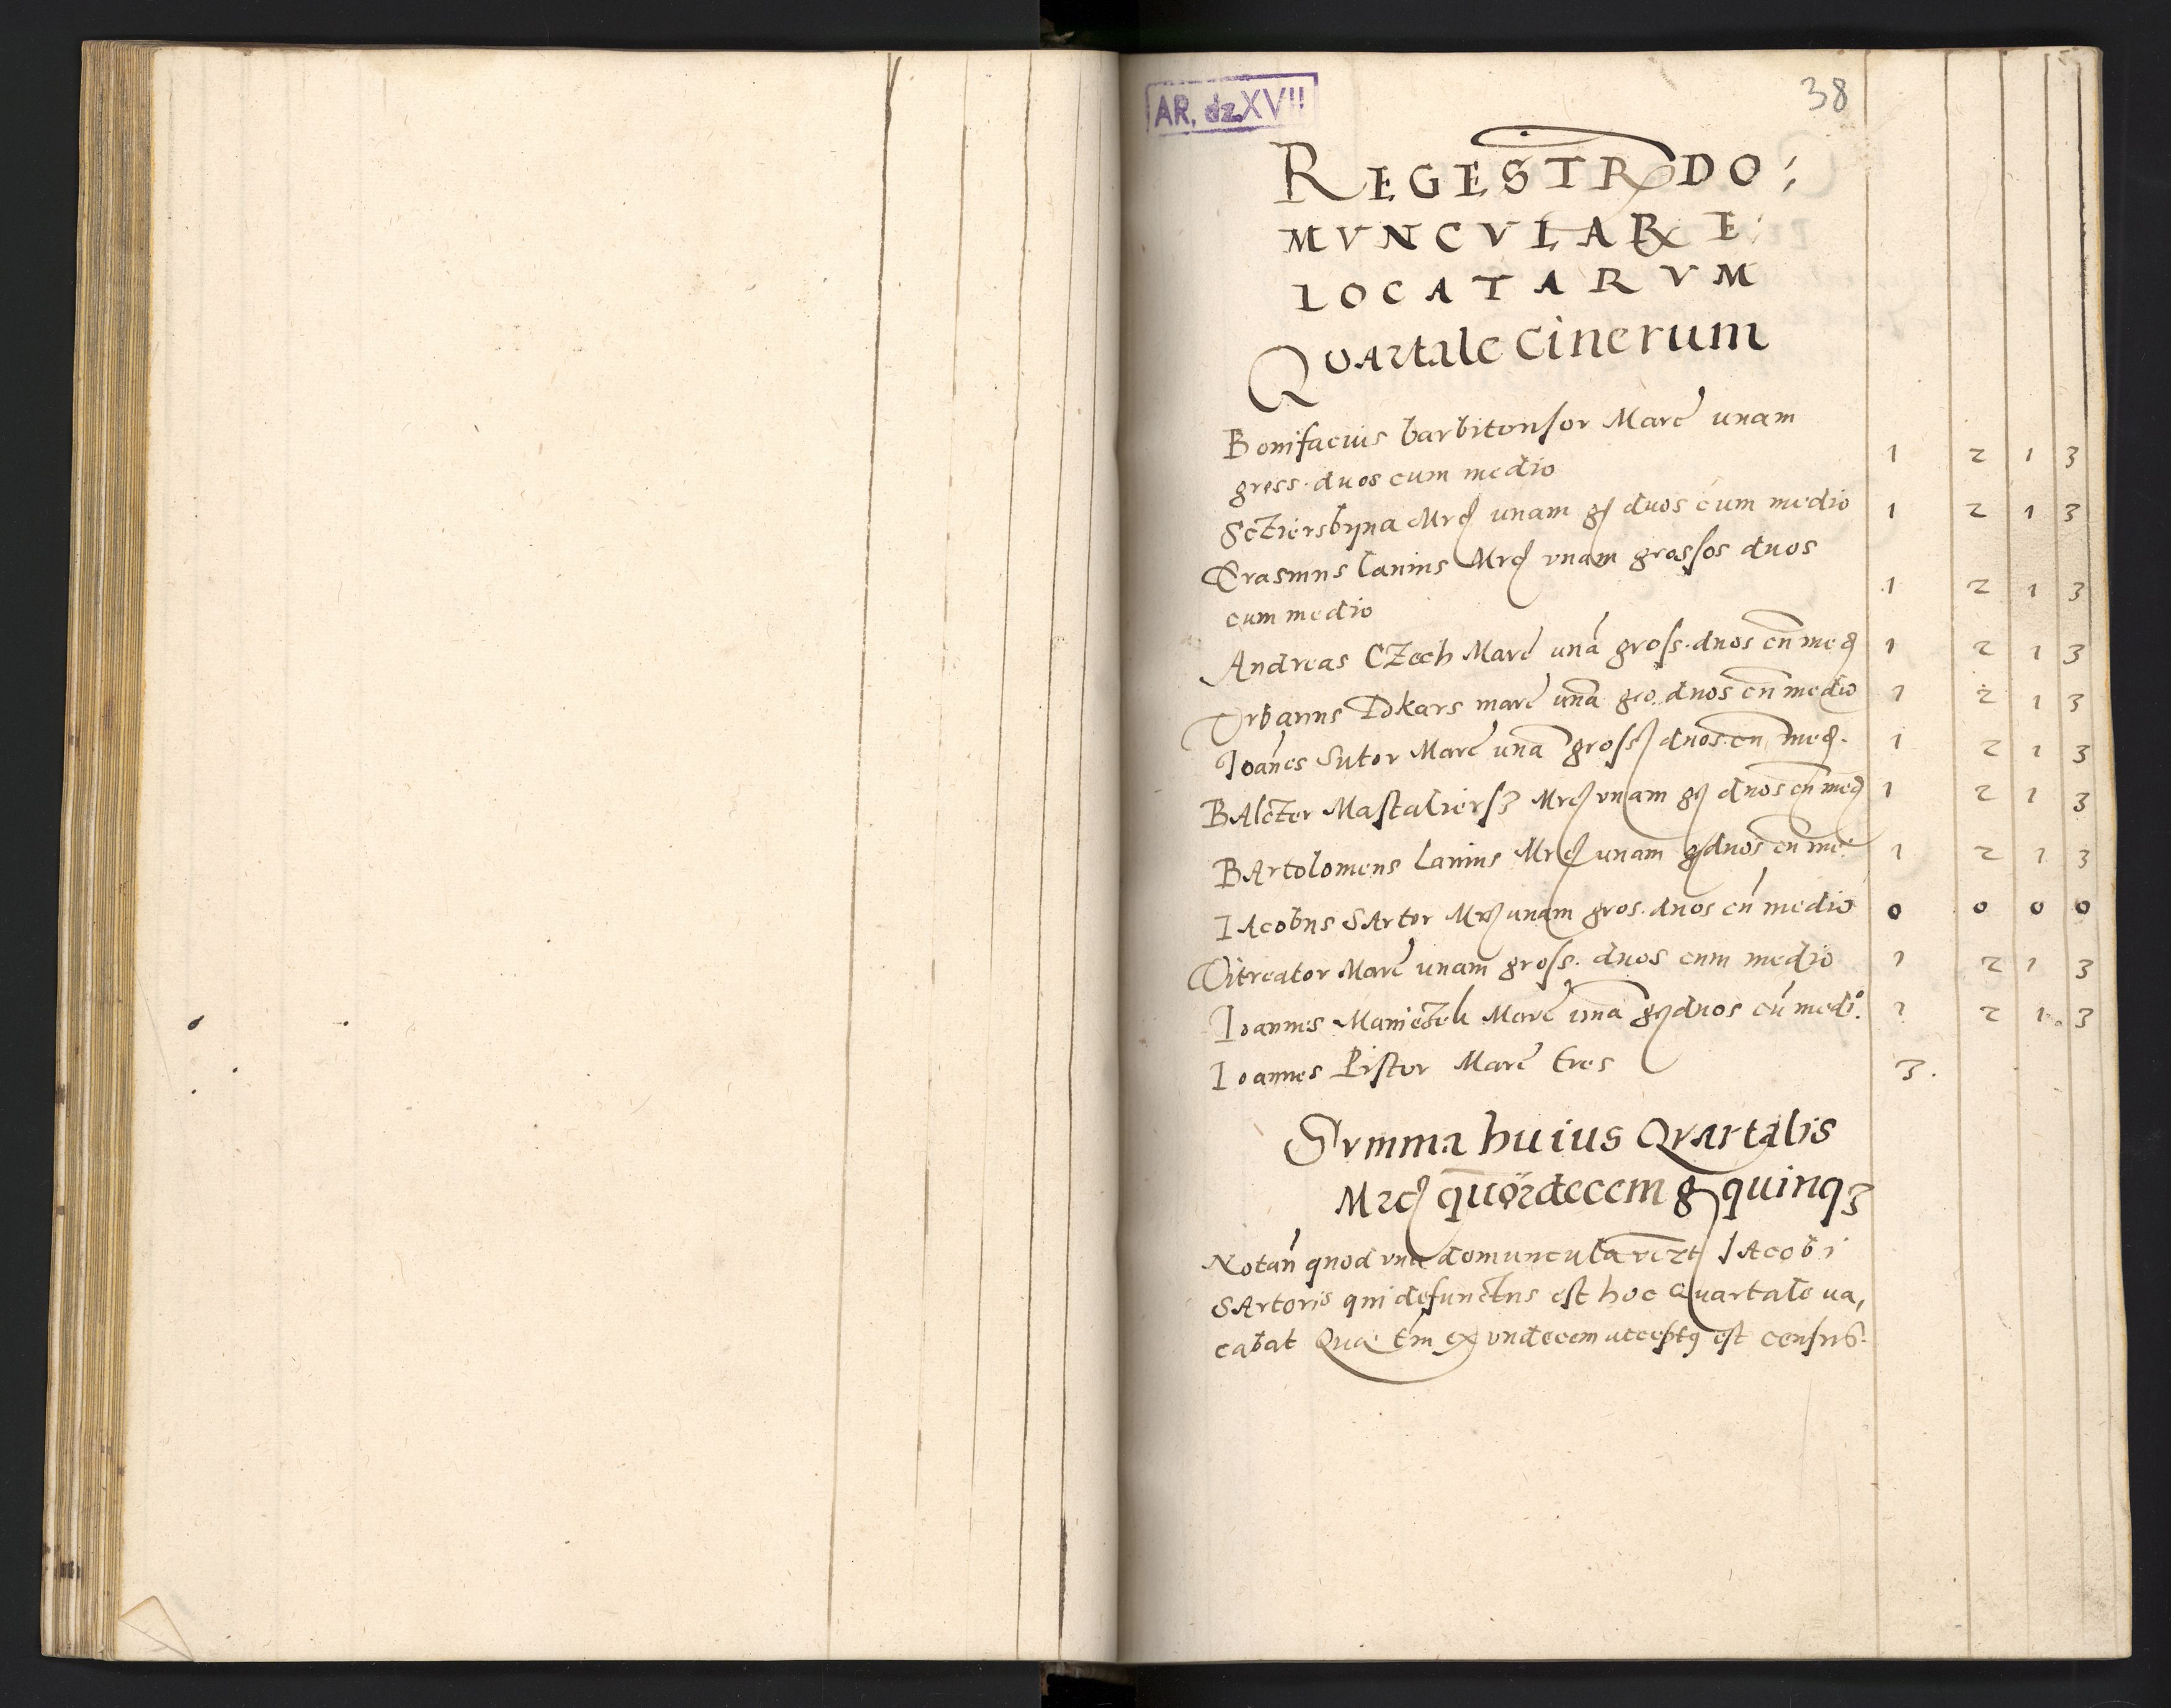 AR. dz XVII
38
REGESTR DO:
MVNCVLAR E:
LOCATARVM
Quartale cinerum
Bonifacius barbitonsor Marc unam
gross. duos cum medio 1 2 1 3
Sctziersbyna Mrc unam g duos cum medio 1 2 1 3
Erasmus lanius Mrc vnam grossos duos
cum medio 1 2 1 3
Andreas CZech Marc una gross. duos cu med 1 2 1 3
Vrbanus marc una gro. duos cu medio 1 2 1 3
Joanes Sutor Marc una gross duos cu med. 1 2 1 3
BAlcZer Mastaliersz Mrc vnam g duos cu med 1 2 1 3
BArtolomeus lanius Mrc unam g duos cu me 1 2 1 3
IAcobus SArtor Mrc unam gros. duos cu medio 0 0 0 0
Vitreator Marc unam gross. duos cum medio 1 2 1 3
Ioannes Marc una g duos cu medio. 1 2 1 3
Ioannes Pistor Marc tres 3.
Svmma huius Qvartalis
Mrc quordecem g quinqz
Notan quod vna domuncula Iacobi
SArtoris qui defunctus est hoc Quartale ua,
cabat Quae tm ex vndecem est census.